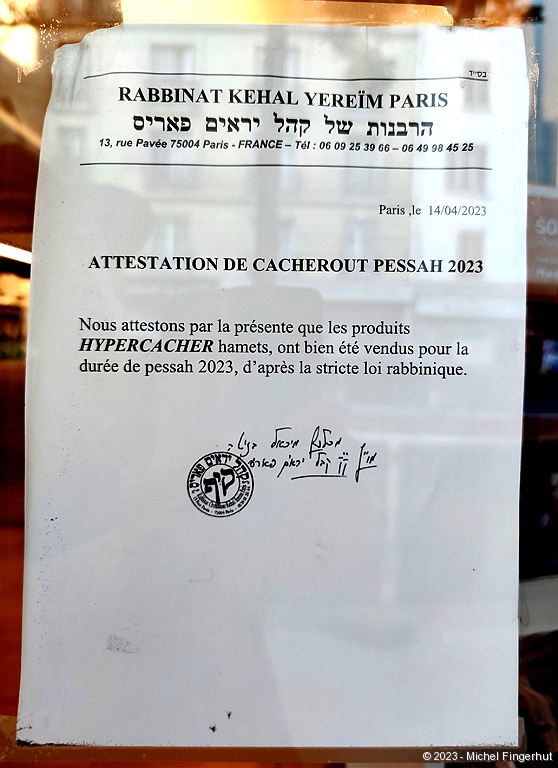 בס״ד
RABBINAT KEHAL YEREÏM PARIS
הרבנות של קהל יראים פאריס
13, rue Pavée 75004 Paris - FRANCE – Tél : 06 09 25 39 66 – 06 49 98 45 25
Paris ,le 14/04/2023
ATTESTATION DE CACHEROUT PESSAH 2023
Nous attestons par la présente que les produits
HYPERCACHER hamets, ont bien été vendus pour la
durée de pessah 2023, d’après la stricte loi rabbinique.
מיכאל
קהל יראים
קהל יראים פאריס
© 2023 - Michel Fingerhut